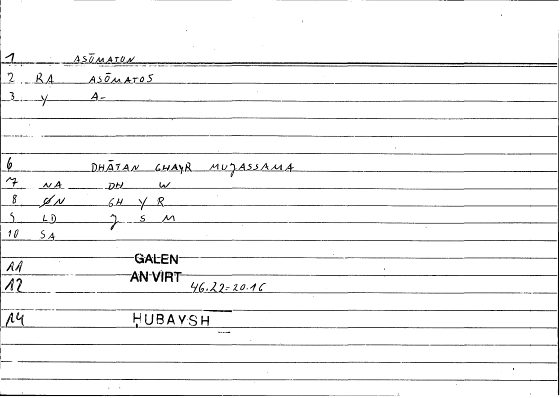 1 ASŌMATON
2 RA ASŌMATOS
3 Y A-
6 DHĀTAN GHAYR MUJASSAMA
7 NA DH W
8 ØN GH Y R
9 LD J S M
10 SA
11 GALEN
12 AN VIRT 46.22=20.16
14 ḤUBAYSH